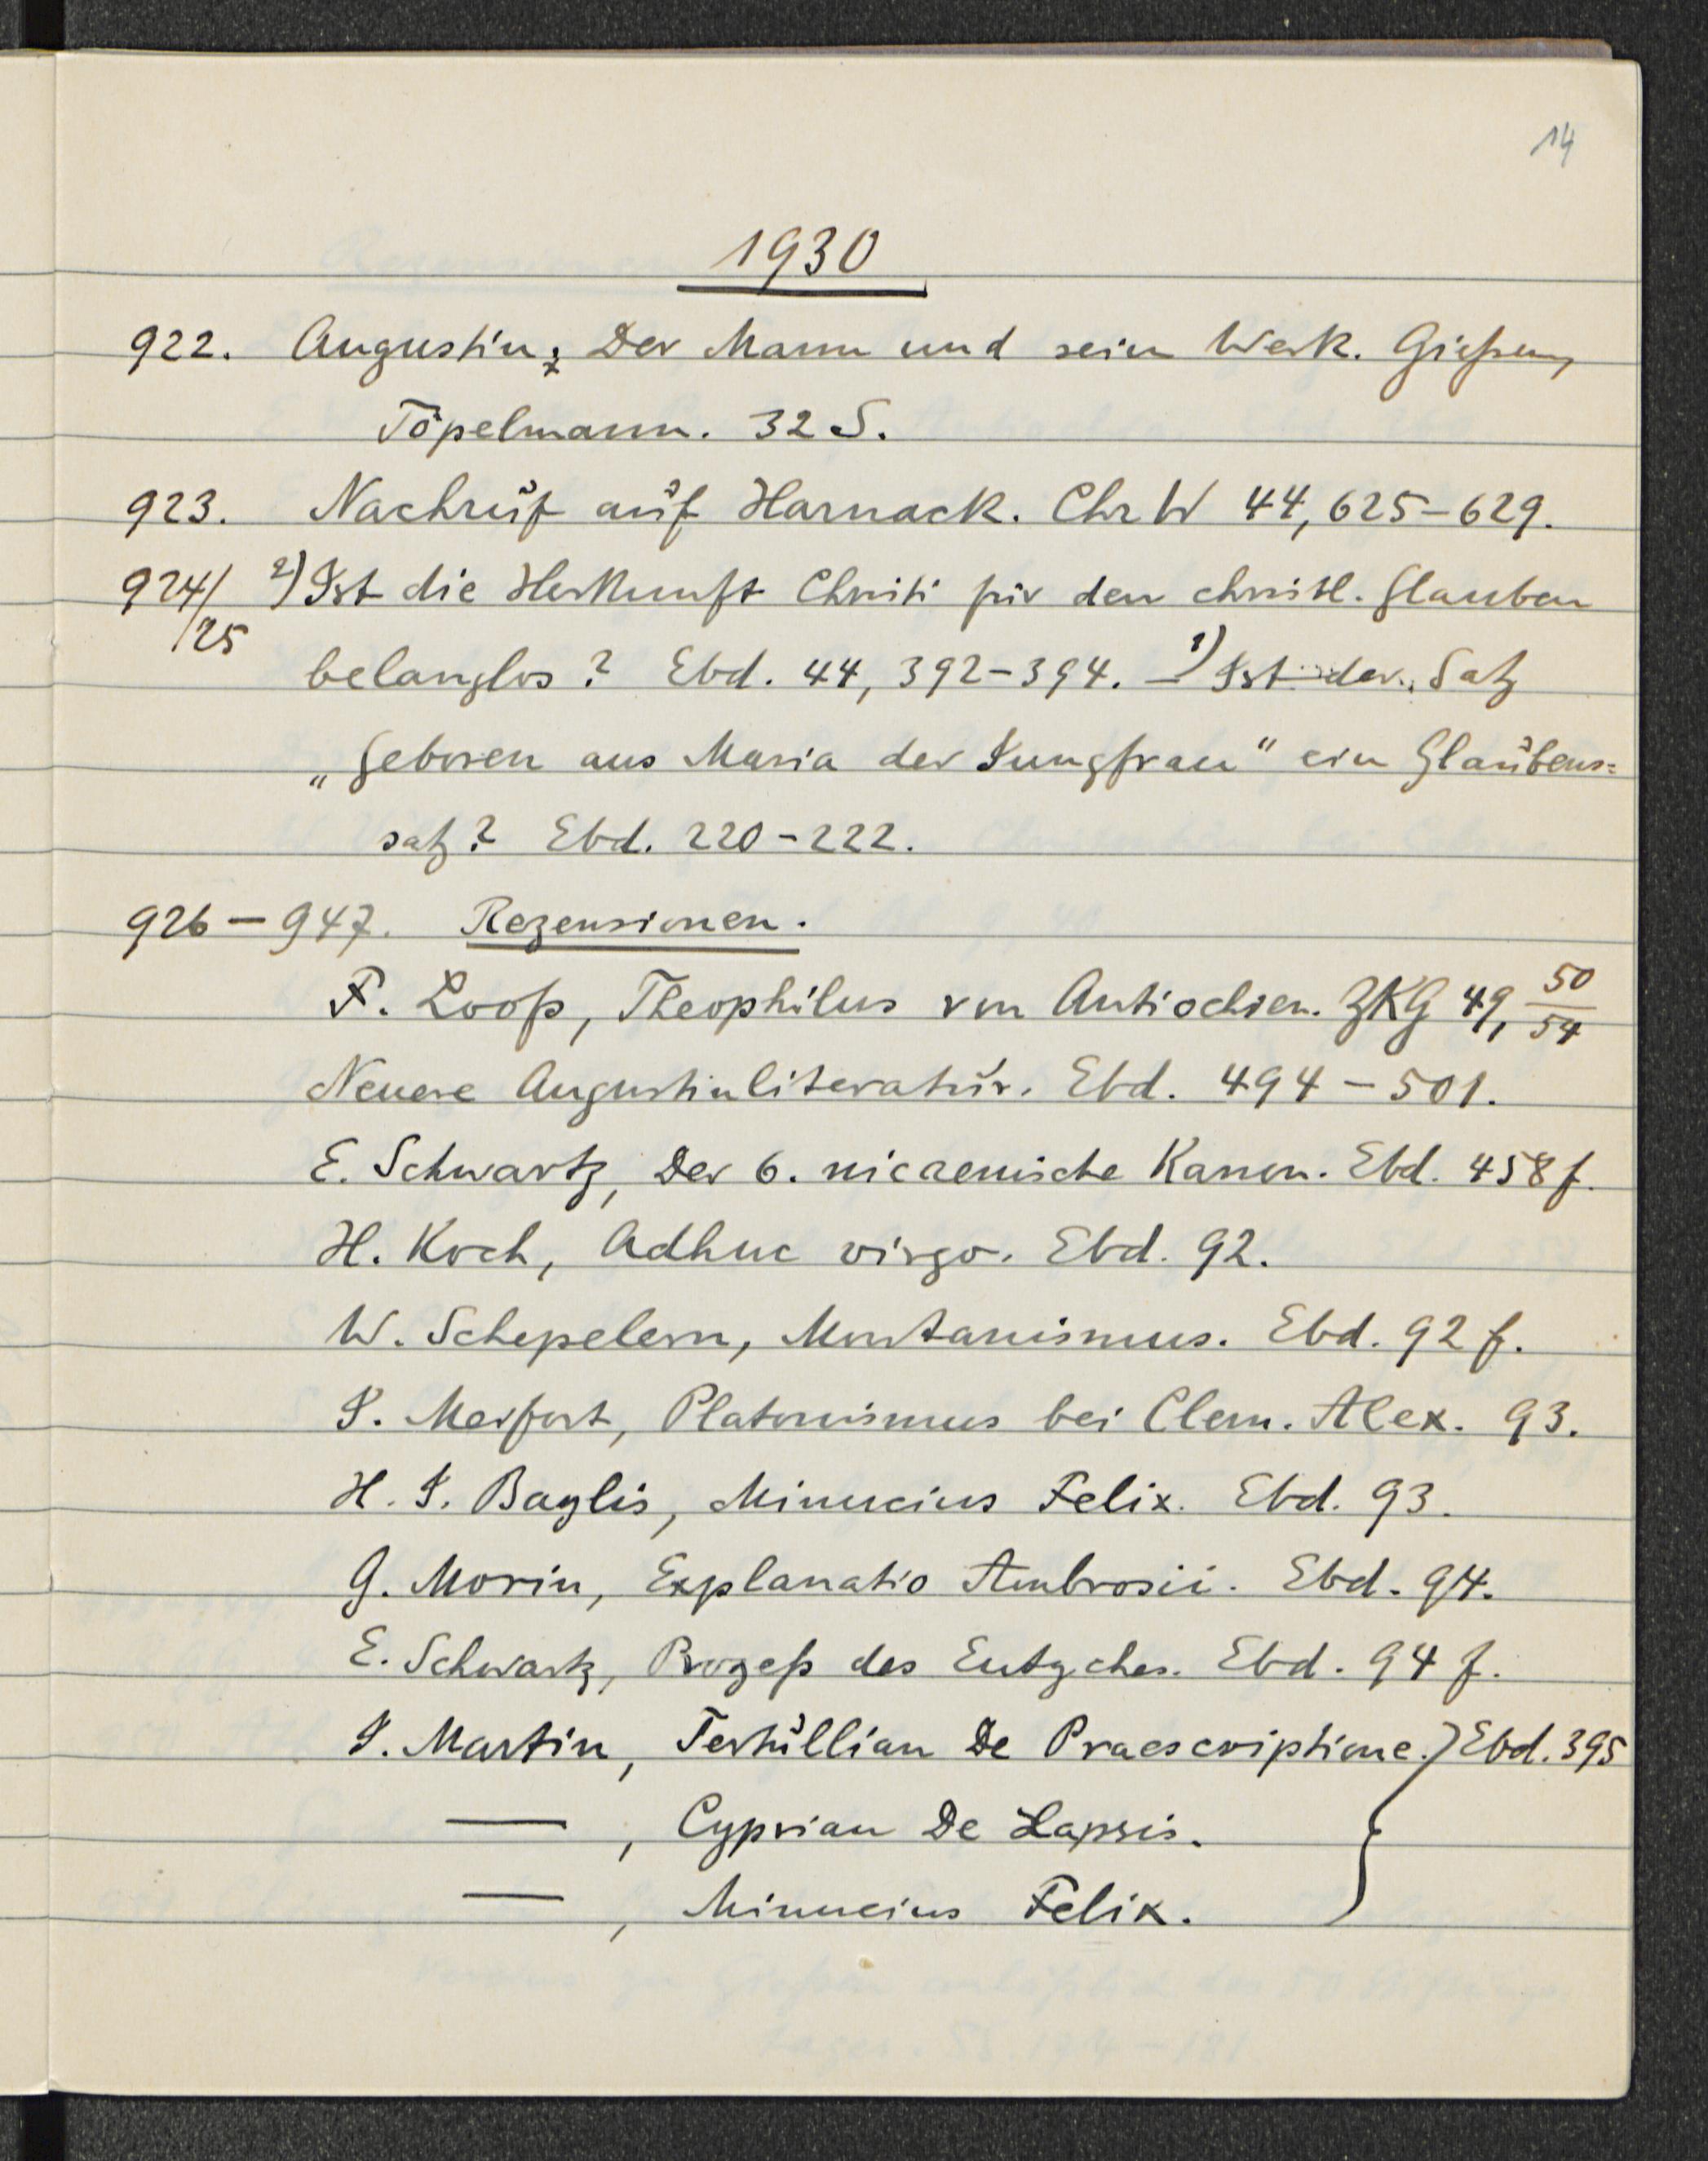 14
1930
922. Augustin; Der Mann und sein Werk. Gießen,
Töpelmann. 32 S.
923. Nachruf auf Harnack. ChrW 44, 625-629.
924/ 2) Ist die Herkunft Christi für den christl. Glauben
/25
belanglos? Ebd. 44, 392-394. - 1) Ist der Satz
„geboren aus Maria der Jungfrau" ein Glaubens=
satz? Ebd. 220-222.
926-947. Rezensionen.
F. Loofs, Theophilus von Antiochien. ZKG 49, 50/54
Neuere Augustinliteratur. Ebd. 494-501.
E. Schwartz, Der 6. nicaenische Kanon. Ebd. 458 f.
H. Koch, Adhuc virgo. Ebd. 92.
W. Schepelern, Montanismus. Ebd. 92 f.
J. Meifort, Platonismus bei Clem. Alex. 93.
H. J. Baylis, Minucius Felix. Ebd. 93.
G. Morin, Explanatio Ambrosii. Ebd. 94.
E. Schwartz, Prozeß des Eutyches. Ebd. 94 f.
J. Martin, Tertullian De Praescriptione. } Ebd. 395
—, Cyprian De Lapsis.
—, Minucius Felix.